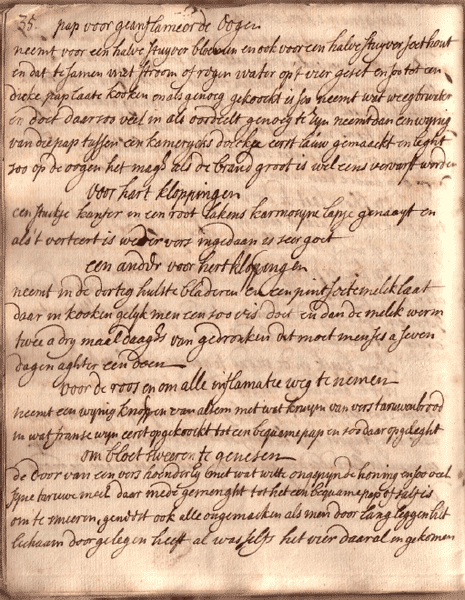 35. pap voor geanflameerde oogen
neemt voor een halve stuyver bloemen en ook voor een halve stuyver soethout
en dat te samen wat stroom of regen water op t vier geset en soo tot een
dicke pap laate kooken en als genoeg gekoockt is soo neemt wat weegbre water
en doet daar soo veel in als oordeelt genoeg te syn neemt dan een wynig
van die pap tussen een kameryckx doeckge eerst lauw gemaackt en leght
soo op de oogen het mag als de brand groot is wel eens ververst worden
voor hart kloppingen
een stuckje kamfer in een root lakens karmosyne lapje genaayt en
als t verteert is weder vers ingedaan is seer goet
een ander voor hert kloppingen
neemt in de hulste bladeren en een pint soete melck laat
daar in kooken gelyk men een soo vis doet en dan de melck werm
twee a dry maal daaghs van gedroncken dit moet men ses a seven
dagen aghter een doen
voor de roos en om alle inflamatie weg te nemen
neemt een wynig knoppen van alsem met wat kruymen van vers taruwenbrood
in wat franse wyn eerst opgekoockt tot een bequame pap en soo daar opgeleght
om bloet sweeren te genesen
de door van een vers hoender ey met wat witte ongepynde honing en soo veel
fyne taruwe meel daar mede gemenght tot het een bequame pap of salf is
om te smeeren, geneest ook alle ongemacken als men door lang leggen hilt
lichaam doorgelegen heeft al was selfs het vier daar al in gekomen